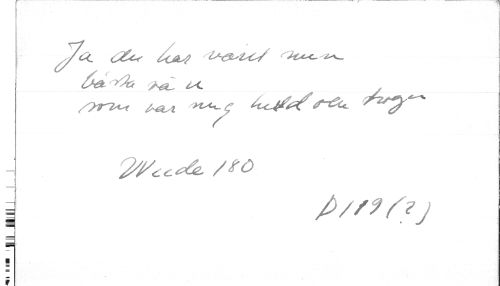 Ja du har varit min
bästa vän
som var mig huld och trogen
Wiede 180
D 119 (?)